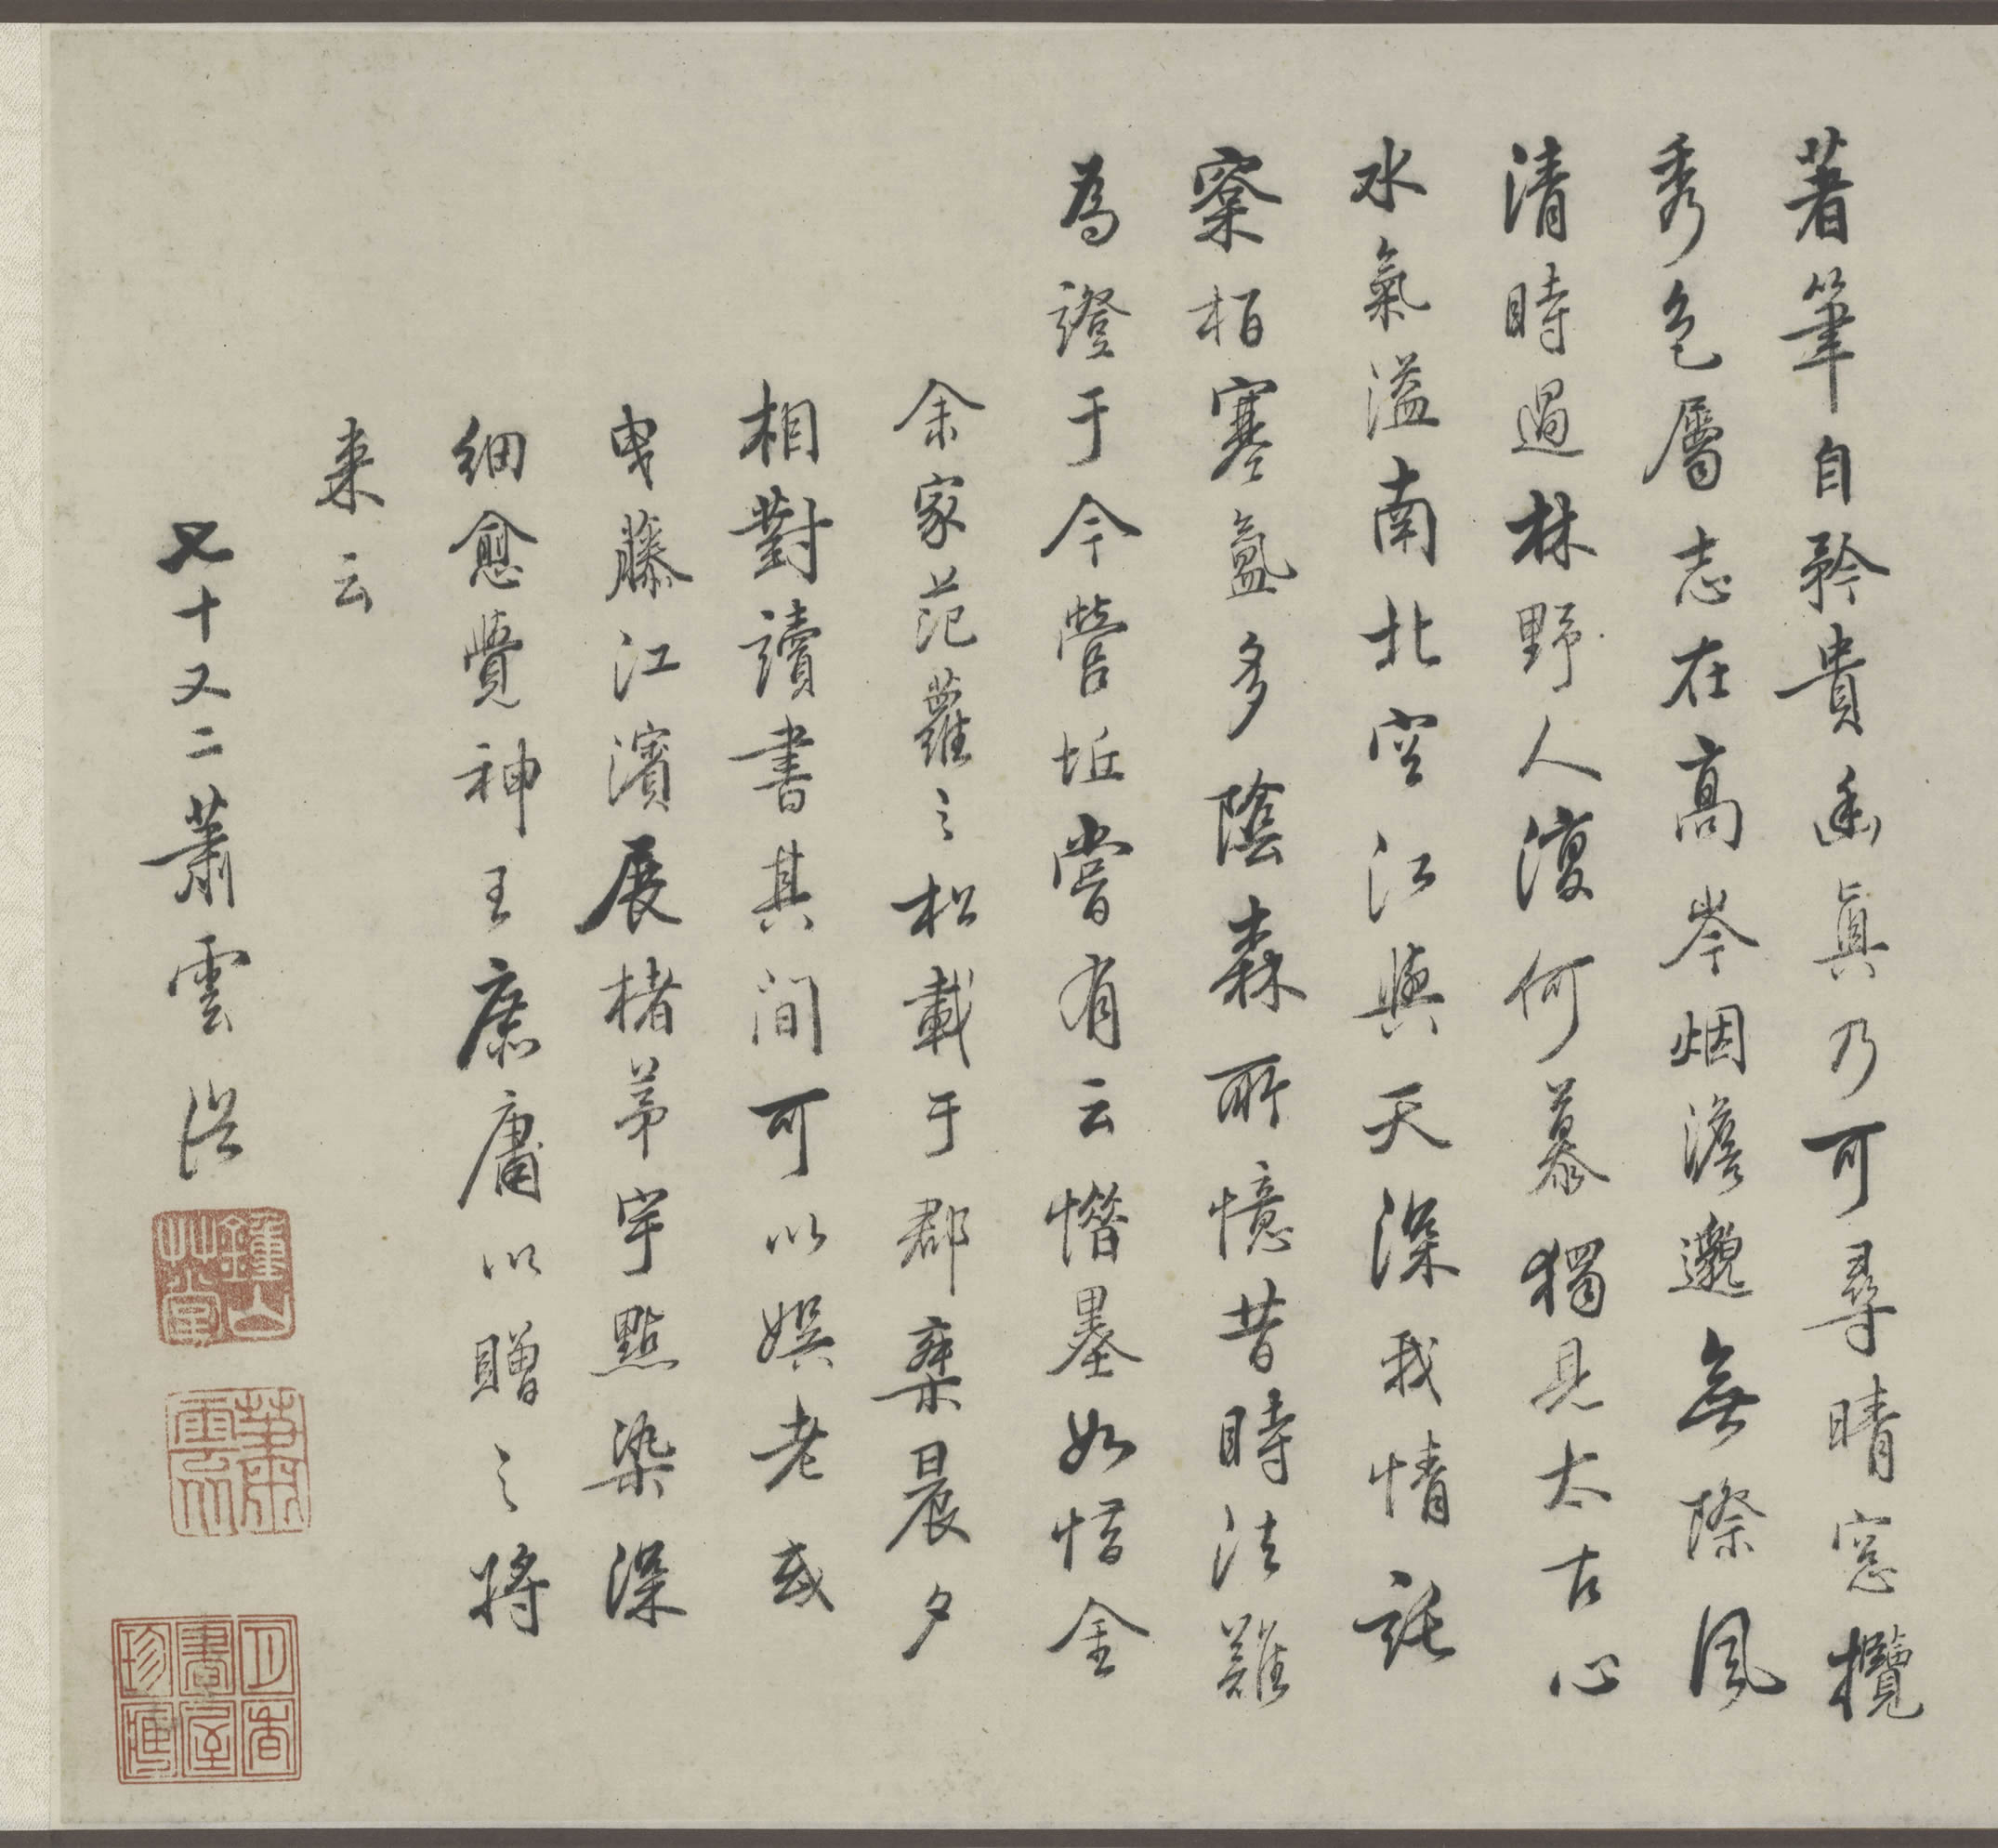 著筆自矜貴幽真乃可尋晴窓攬
秀色屬志在高岑烟澹邈無際風
清時過林野人復何慕獨見太古心
水氣溢南北空江與天深我情託
窠栢寒氳多陰森所憶昔時法難
為證于今營坵嘗有云惜墨如惜金
余家范蘿之松載于郡乘晨夕
相對讀書其間可以娛老或
曳藤江濱展楮茅宇點染深
細愈覺神王庶庸以贈之將
来云
七十又二蕭雲從
鍾山草堂
蕭雲從
珍賞